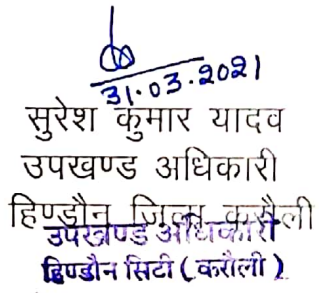 31.03.2021
सुरेश कुमार यादव
उपखण्ड अधिकारी
हिण्डौन जिला करौली
उपखण्ड अधिकारी
हिण्डौन सिटी ( करौली )